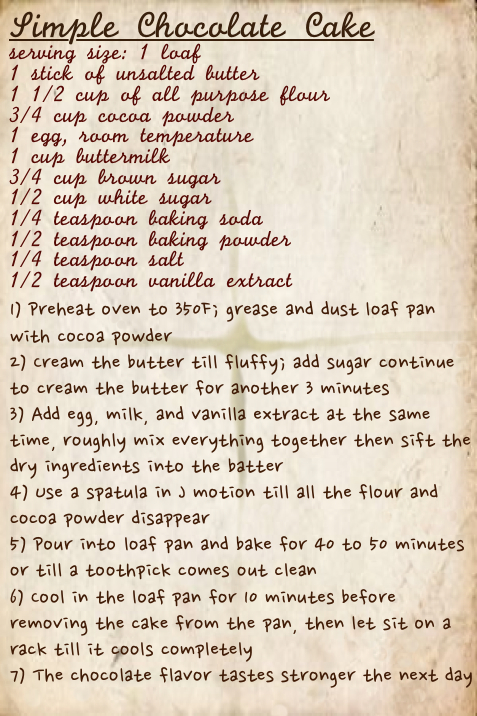 Simple Chocolate Cake
serving size: 1 loaf
1 stick of unsalted butter
1 1/2 cup of all purpose flour
3/4 cup cocoa powder
1 egg, room temperature
1 cup buttermilk
3/4 cup brown sugar
1/2 cup white sugar
1/4 teaspoon baking soda
1/2 teaspoon baking powder
1/4 teaspoon salt
1/2 teaspoon vanilla extract
1) Preheat oven to 350F; grease and dust loaf pan
with cocoa powder
2) Cream the butter till fluffy; add sugar continue
to cream the butter for another 3 minutes
3) Add egg, milk, and vanilla extract at the same
time, roughly mix everything together then sift the
dry ingredients into the batter
4) Use a spatula in J motion till all the flour and
cocoa powder disappear
5) Pour into loaf pan and bake for 40 to 50 minutes
or till a toothpick comes out clean
6) Cool in the loaf pan for 10 minutes before
removing the cake from the pan, then let sit on a
rack till it cools completely
7) The chocolate flavor tastes stronger the next day